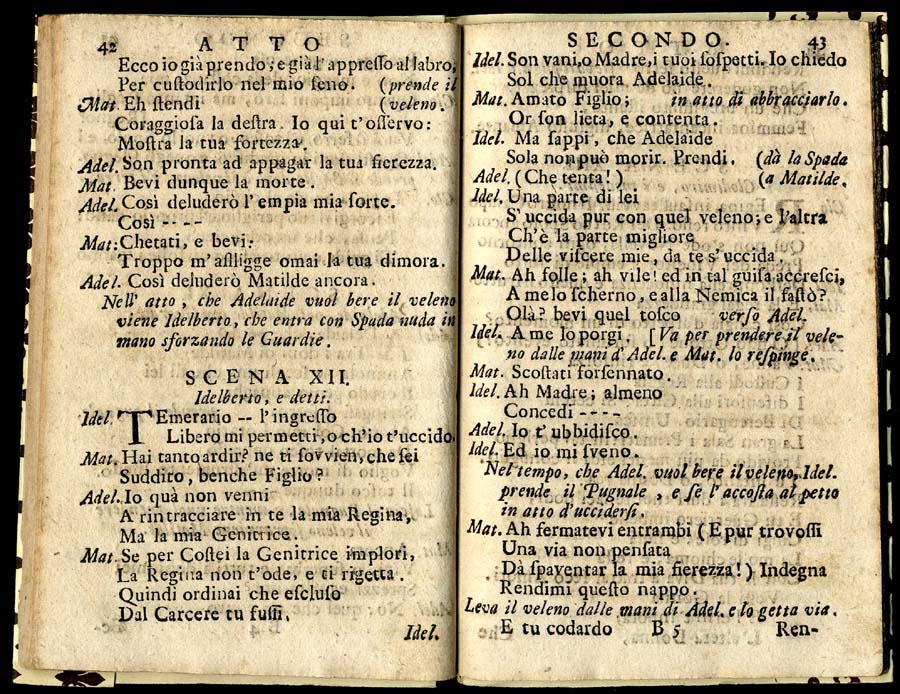 42 ATTO
Ecco io già prendo; e già l'appresso al labro,
Per custodirlo nel mio seno. (prende il
Mat. Eh stendi (veleno.
Coraggiosa la destra. Io qui t'osservo:
Mostra la tua fortezza.
Adel. Son pronta ad appagar la tua fierezza.
Mat. Bevi dunque la morte.
Adel. Così deluderò l'empia mia sorte.
Così ----
Mat: Chetati, e bevi:
Troppo m'aslligge omai la tua dimora.
Adel. Così deluderò Matilde ancora.
Nell' atto, che Adelaide vuol bere il veleno
viene Idelberto, che entra con Spada nuda in
mano sforzando le Guardie.
SCENA XII.
Idelberto, e detti.
Idel. TEmerario -- l'ingresso
Libero mi permetti, o ch'io t'uccido.
Mat. Hai tanto ardir? ne ti sovvien, che sei
Suddito, benche Figlio?
Adel. Io quà non venni
A rintracciare in te la mia Regina,
Ma la mia Genitrice.
Mat. Se per Costei la Genitrice implori,
La Regina non t'ode, e ti rigetta.
Quindi ordinai che escluso
Dal Carcere tu fussi.
Idel.
SECONDO. 43
Idel. Son vani, o Madre, i tuoi sospetti. Io chiedo
Sol che muora Adelaide.
Mat. Amato Figlio; in atto di abbracciarlo.
Or son lieta, e contenta.
Idel. Ma sappi, che Adelaide
Sola non può morir. Prendi. (dà la Spada
Adel. (Che tenta!) (a Matilde.
Idel. Una parte di lei
S'uccida pur con quel veleno; e l'altra
Ch'è la parte migliore
Delle viscere mie, da te s'uccida.
Mat. Ah folle; ah vile! ed in tal guisa accresci,
A me lo scherno, e alla Nemica il fastò?
Olà? bevi quel tosco verso Adel.
Idel. A me lo porgi. [Va per prendere il vele-
no dalle mani d' Adel. e Mat. lo respinge.
Mat. Scostati forsennato.
Idel. Ah Madre; almeno
Concedi ----
Adel. Io t'ubbidisco.
Idel. Ed io mi sveno.
Nel tempo, che Adel. vuol bere il veleno, Idel.
prende il Pugnale, e se l'accosta al petto
in atto d'uccidersi.
Mat. Ah fermatevi entrambi (E pur trovossi
Una via non pensata
Dà spaventar la mia fierezza!) Indegna
Rendimi questo nappo.
Leva il veleno dalle mani di Adel. e lo getta via.
E tu codardo B 5 Ren-